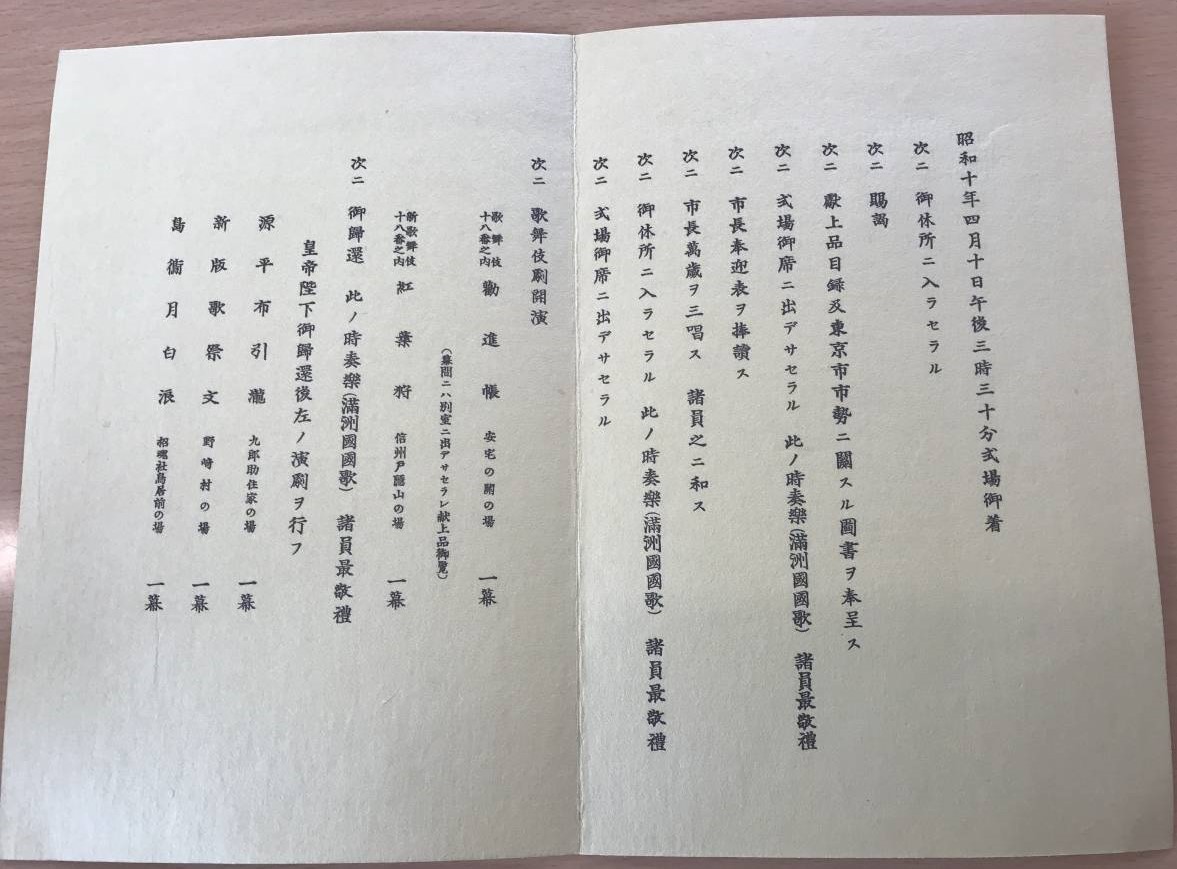 昭和十年四月十日午後三時三十分式場御着
次ニ 御休所ニ入ラセラル
次ニ 賜謁
次ニ 獻上品目録及東京市市勢ニ關スル圖書ヲ奉呈ス
次ニ 式場御席ニ出デサセラル 此ノ時奏樂(滿洲國國歌) 諸員最敬禮
次ニ 市長奉迎表ヲ捧讀ス
次ニ 市長萬歳ヲ三唱ス 諸員之ニ和ス
次ニ 御休所ニ入ラセラル 此ノ時奏樂(滿洲國國歌) 諸員最敬禮
次ニ 式場御席ニ出デサセラル
次ニ 歌舞伎劇開演
歌舞伎十八番之内 勸進帳 安宅の關の場 一幕
(幕間ニハ別室ニ出デサセラレ献上品御覽)
新歌舞伎十八番之内 紅葉狩 信州戸隱山の場 一幕
次ニ 御歸還 此ノ時奏樂(滿洲國國歌) 諸員最敬禮
皇帝陛下御歸還後左ノ演劇ヲ行フ
源平布引瀧 九郎助住家の場 一幕
新版歌祭文 野崎村の場 一幕
島鵆月白浪 招魂社鳥居前の場 一幕